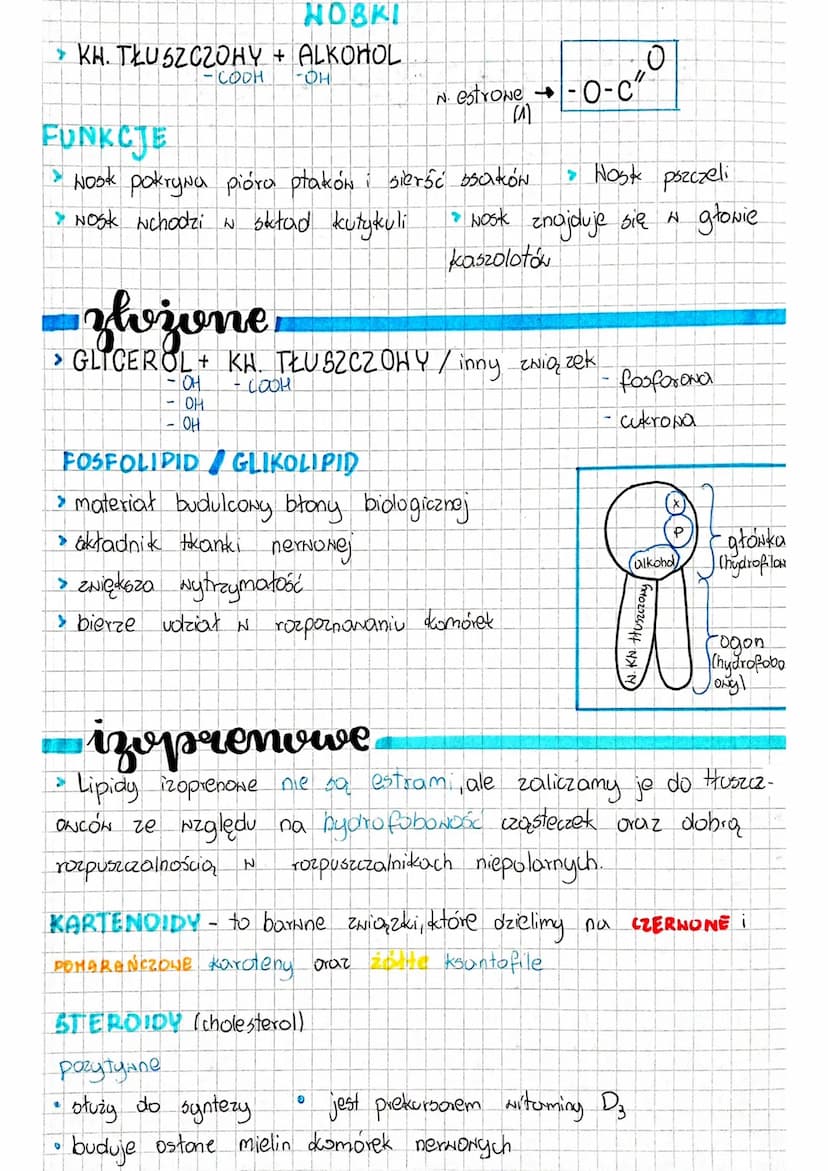 WOSKI
> KW. TŁUSZCZOWY + ALKOHOL
-COOH -OH
w. estrowe → -O-C=O
(1)
FUNKCJE
> wosk pokrywa pióra ptaków i sierść ssaków > Wosk pszczeli
> wosk wchodzi w skład kutykuli > wosk znajduje się w głowie
kaszolotów
złożone
> GLICEROL + KW. TŁUSZCZOWY / inny związek
- OH -COOH - fosforowa
- OH
- OH - cukrowa
FOSFOLIPID / GLIKOLIPID
> materiał budulcowy błony biologicznej
> składnik tkanki nerwowej
> zwiększa wytrzymałość
> bierze udział w rozpoznawaniu komórek
X
P
alkohol
główka
(hydrofilow
w. kw. tłuszczowy
ogon
(hydrofobo
owy)
izoprenowe
> Lipidy izoprenowe nie są estrami, ale zaliczamy je do tłuszcz-
owców ze względu na hydrofobowość cząsteczek oraz dobrą
rozpuszczalnością w rozpuszczalnikach niepolarnych.
KARTENOIDY - to barwne związki, które dzielimy na CZERWONE i
POMARAŃCZOWE karoteny oraz żółte ksantofile
STEROIDY (cholesterol)
pozytywne
• służy do syntezy • jest prekursorem witaminy D₃
• buduje osłone mielin komórek nerwowych